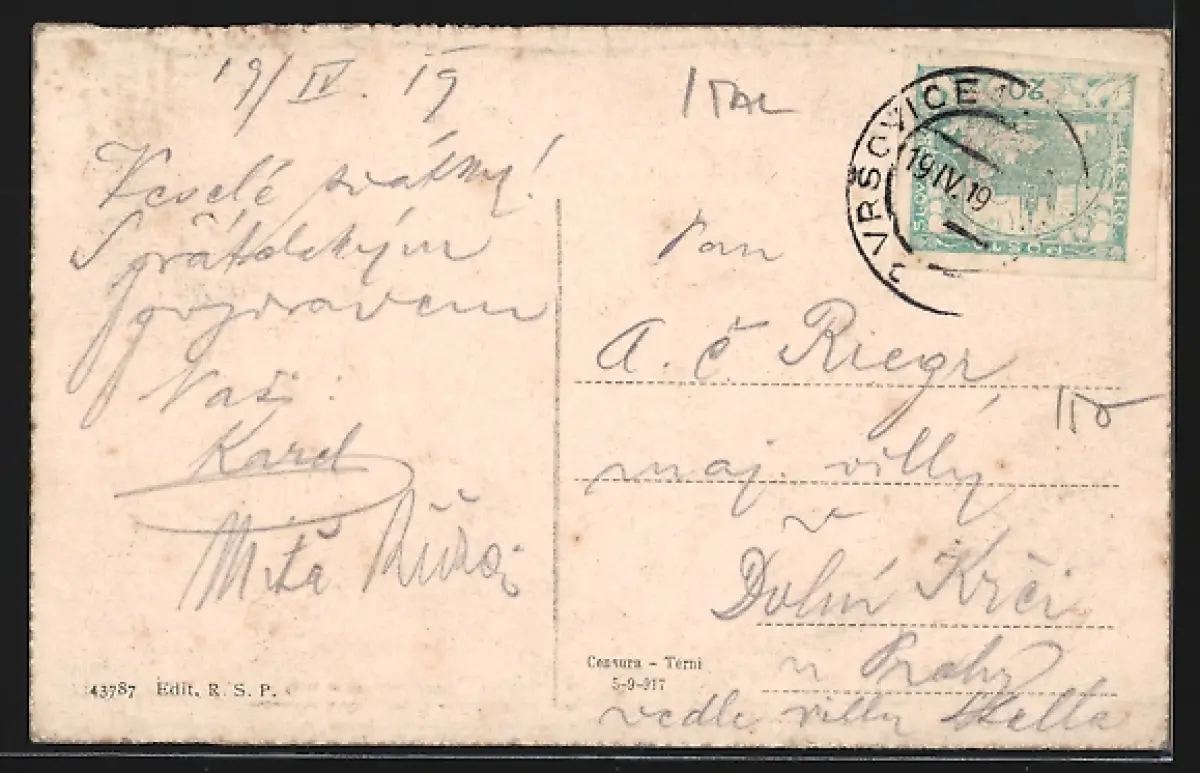 19/IV. 19
Veselé svátky!
S přátelským
pozdravem
Vaši:
Karel
Míťa
43787 Edit. R. S. P.
VRŠOVICE
19.IV.19
20
POŠTA
ČESKO
SLOV
Pan
A. Č Riegr,
maj. villy
v
Dolní Krči
u Prahy
vedle villy
Censura - Terni
5-9-917